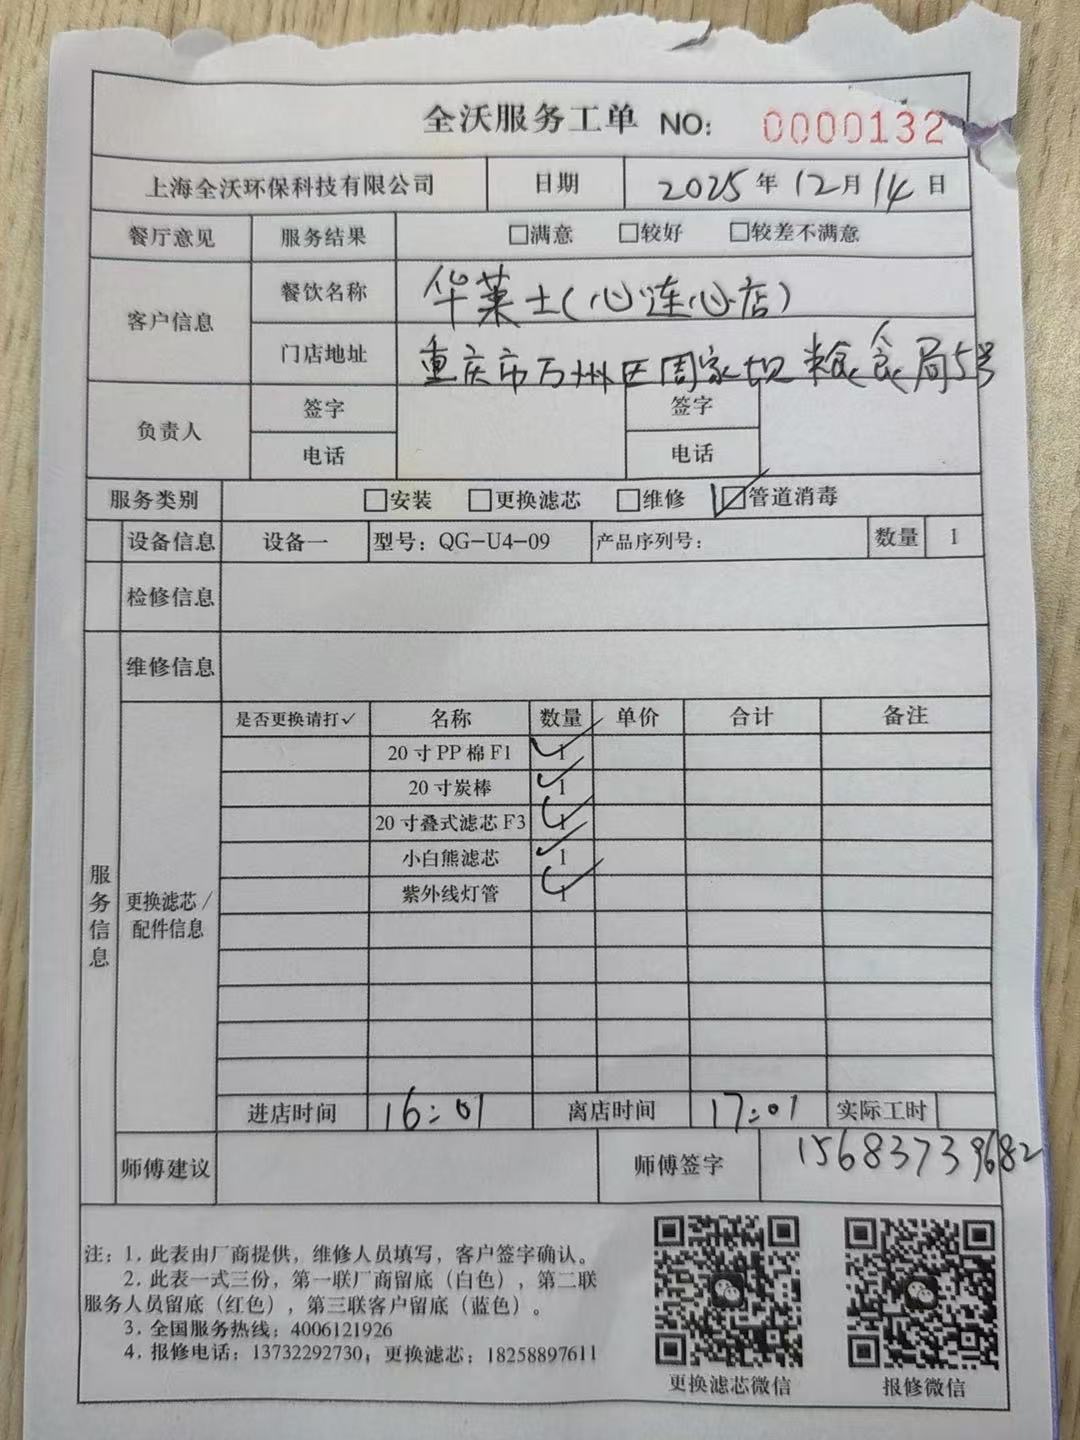 全沃服务工单 NO: 0000132
上海全沃环保科技有限公司 日期 2025年12月14日
餐厅意见 服务结果 □满意 □较好 □较差不满意
客户信息 餐饮名称 华莱士(心连心店)
门店地址 重庆市万州区周家坝粮食局5号
负责人 签字 签字
电话 电话
服务类别 □安装 □更换滤芯 □维修 ☑管道消毒
设备信息 设备一 型号：QG-U4-09 产品序列号： 数量 1
检修信息
维修信息
是否更换请打✓ 名称 数量 单价 合计 备注
20寸PP棉F1 1 ✓
20寸炭棒 1 ✓
20寸叠式滤芯F3 1 ✓
小白熊滤芯 1 ✓
紫外线灯管 1 ✓
服务信息
更换滤芯/
配件信息
进店时间 16:01 离店时间 17:01 实际工时
师傅建议 师傅签字 15683739682
注：1. 此表由厂商提供，维修人员填写，客户签字确认。
2. 此表一式三份，第一联厂商留底（白色），第二联
服务人员留底（红色），第三联客户留底（蓝色）。
3. 全国服务热线：4006121926
4. 报修电话：13732292730；更换滤芯：18258897611
更换滤芯微信 报修微信